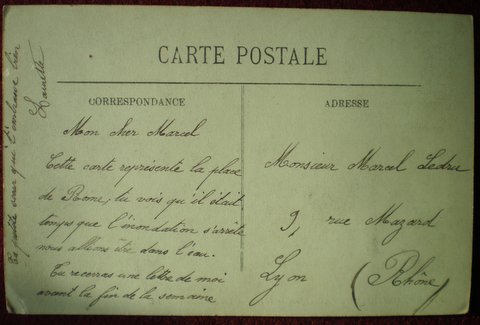 CARTE POSTALE
CORRESPONDANCE
Mon cher Marcel
Cette carte représente la place
de Rome, tu vois qu'il était
temps que l'inondation s'arrête
nous allions être dans l'eau.
Tu recevras une lettre de moi
avant la fin de la semaine
Ta petite sœur qui t'embrasse bien
ADRESSE
Monsieur Marcel Ledru
9, rue Mazard
Lyon (Rhône)